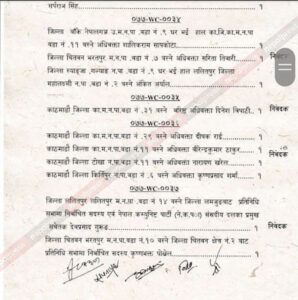 सर्पराज सिंह..................................................१
०७७-WC-००३४
जिल्ला बाँके नेपालगञ्ज उ.म.न.पा. वडा नं .९ घर भई हाल का.जि.का.म.न.पा
वडा नं .११ बस्ने अधिवक्ता शालिकराम सापकोटा.......................१
जिल्ला चितवन भरतपुर म.न.पा.वडा नं .७ बस्ने अधिवक्ता सरिता तिवारी.१ निवेदक
जिल्ला स्याङ्जा ,गल्याङ न.पा.वडा नं .९ घर भई हाल ललितपुर जिल्ला
महालक्ष्मी न.पा. वडा नं .२ बस्ने अंकित अर्याल.......................१
०७७-WC-००३५
काठमाडौँ जिल्ला का.म.न.पा.वडा नं .३१ बस्ने वरिष्ठ अधिवक्ता दिनेश त्रिपाठी.१ निवेदक
०७७-WC-००३६
काठमाडौँ जिल्ला का.म.न.पा. वडा नं .२९ बस्ने अधिवक्ता दीपक राई.......१
काठमाडौँ जिल्ला का.म.न.पा.वडा नं .११ बस्ने अधिवक्ता बीरेन्द्रकुमार ठाकुर...१ निवेदक
काठमाडौँ जिल्ला टोखा न.पा.वडा नं .११ बस्ने अधिवक्ता नारायण खरेल.....१
काठमाडौँ जिल्ला किर्तिपुर न.पा.वडा नं .६ बस्ने अधिवक्ता कृष्णप्रसाद शर्मा...१
०७७-WC-००३७
जिल्ला ललितपुर ललितपुर म.न.पा. वडा नं १४ बस्ने जिल्ला लमजुङबाट प्रतिनिधि
सभामा निर्वाचित सदस्य एवं नेपाल कम्युनिष्ट पार्टी (ने.क.पा.) संसदीय दलका प्रमुख
सचेतक देवप्रसाद गुरुङ.......................................१ निवेदक
जिल्ला चितवन भरतपुर म.न.पा.वडा नं.१० बस्ने जिल्ला चितवन क्षेत्र नं.२ बाट
प्रतिनिधि सभामा निर्वाचित सदस्य कृष्णभक्त पोखेल...............१